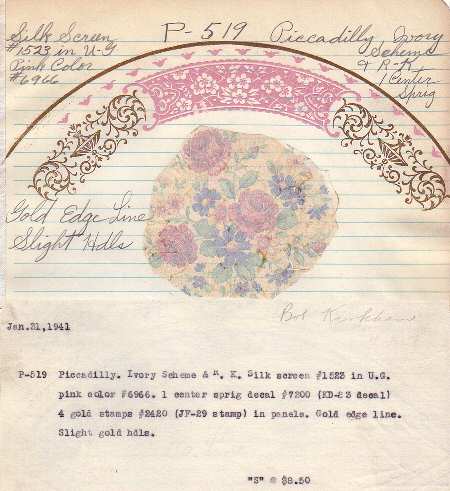 Silk Screen P-519 Piccadilly, Ivory
#1523 in U-G Scheme
Pink Color & R-K,
#6966 1 Center
Sprig
Gold Edge Line
Slight Hdls
Bob
Jan.21,1941
P-519 Piccadilly. Ivory Scheme & R. K. Silk screen #1523 in U.G.
pink color #6966. 1 center sprig decal #7200 (KD-83 decal)
4 gold stamps #2420 (JF-29 stamp) in panels. Gold edge line.
Slight gold hdls.
"S" @ $8.50